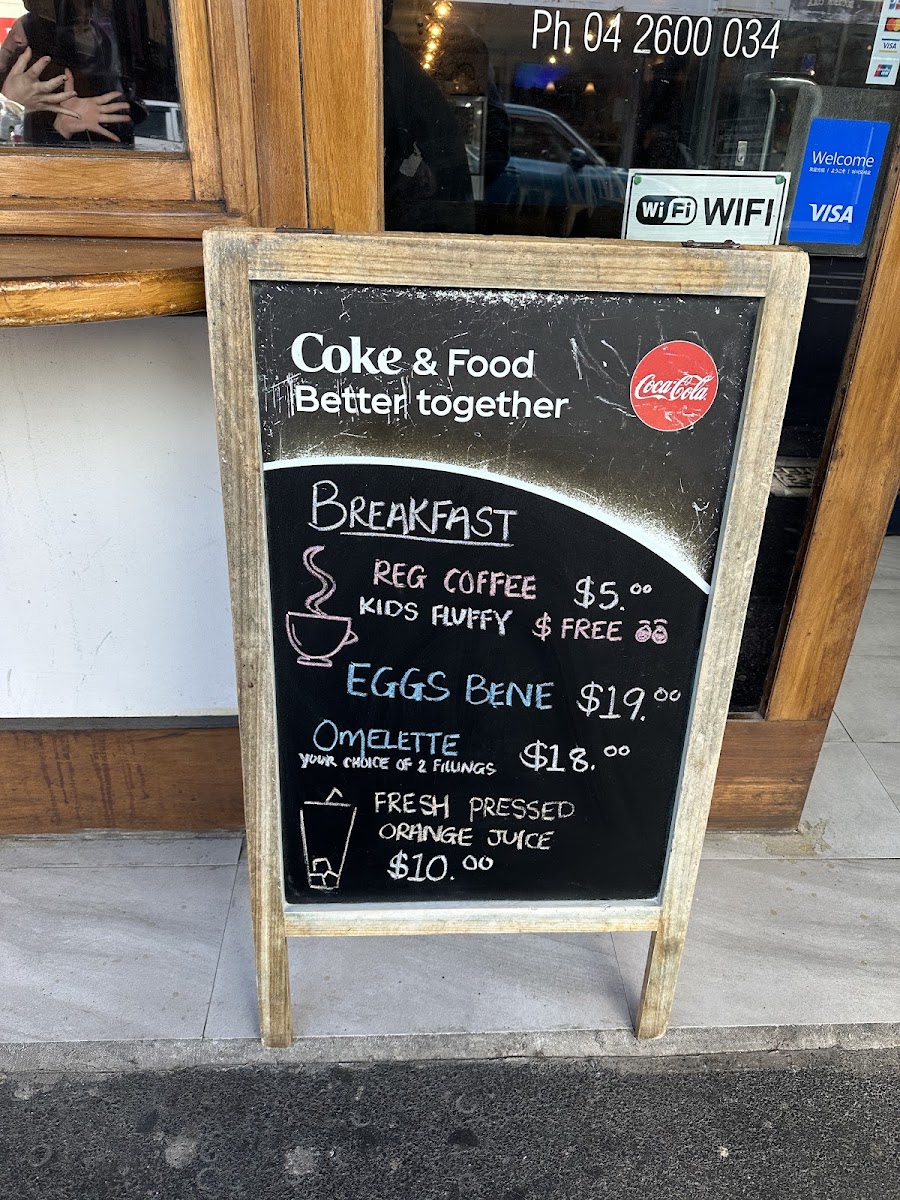 Ph 04 2600 034
VISA
Welcome
VISA
WiFi WIFI
Coke & Food
Better together
Coca-Cola
BREAKFAST
REG COFFEE $5.00
KIDS FLUFFY $ FREE
EGGS BENE $19.00
OMELETTE $18.00
YOUR CHOICE OF 2 FILLINGS
FRESH PRESSED
ORANGE JUICE
$10.00